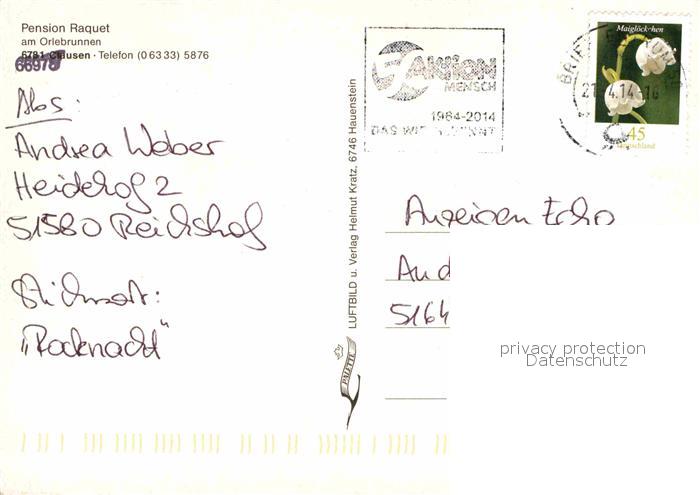 Pension Raquet
am Orlebrunnen
6781 Clausen · Telefon (0 63 33) 5876
66978
Abs:
Andrea Weber
Heidehof 2
51580 Reichshof
Stichwort:
„Rocknacht“
LUFTBILD u. Verlag Helmut Kratz, 6746 Hauenstein
PALETTE
AKTION
MENSCH
1964-2014
DAS WIR GEWINNT
BRIEF
21. 4.14-16
Maiglöckchen
45
Deutschland
Anzeigen Echo
An d
5164
privacy protection
Datenschutz